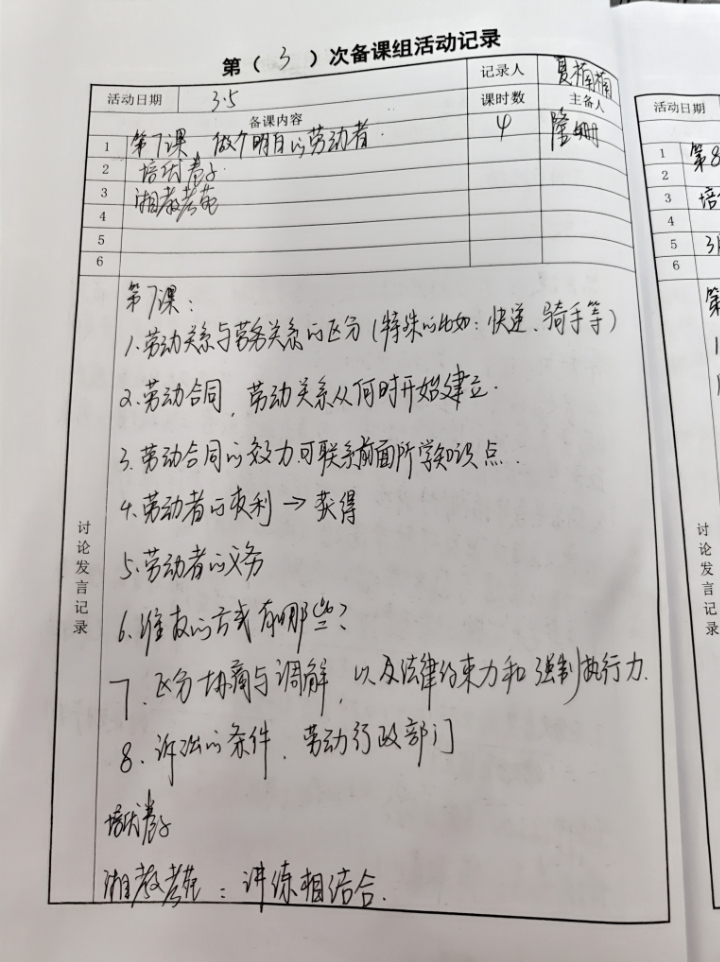 第（ 3 ）次备课组活动记录
活动日期 3.5 记录人 夏楠楠
备课内容 课时数 主备人
1 第7课 做个明白的劳动者. 4 隆姗
2 培优卷子
3 湘教考苑
4
5
6
讨论发言记录
第7课：
1.劳动关系与劳务关系的区分（特殊的比如：快递、骑手等）
2.劳动合同，劳动关系从何时开始建立.
3.劳动合同的效力可联系前面所学知识点.
4.劳动者的权利→获得
5.劳动者的义务
6.维权的方式有哪些？
7.区分协商与调解，以及法律约束力和强制执行力.
8.诉讼的条件、劳动行政部门
培优卷子
湘教考苑：讲练相结合.
活动日期
1 第8
2
3 培
4
5 3
6
第
1
讨论发言记录